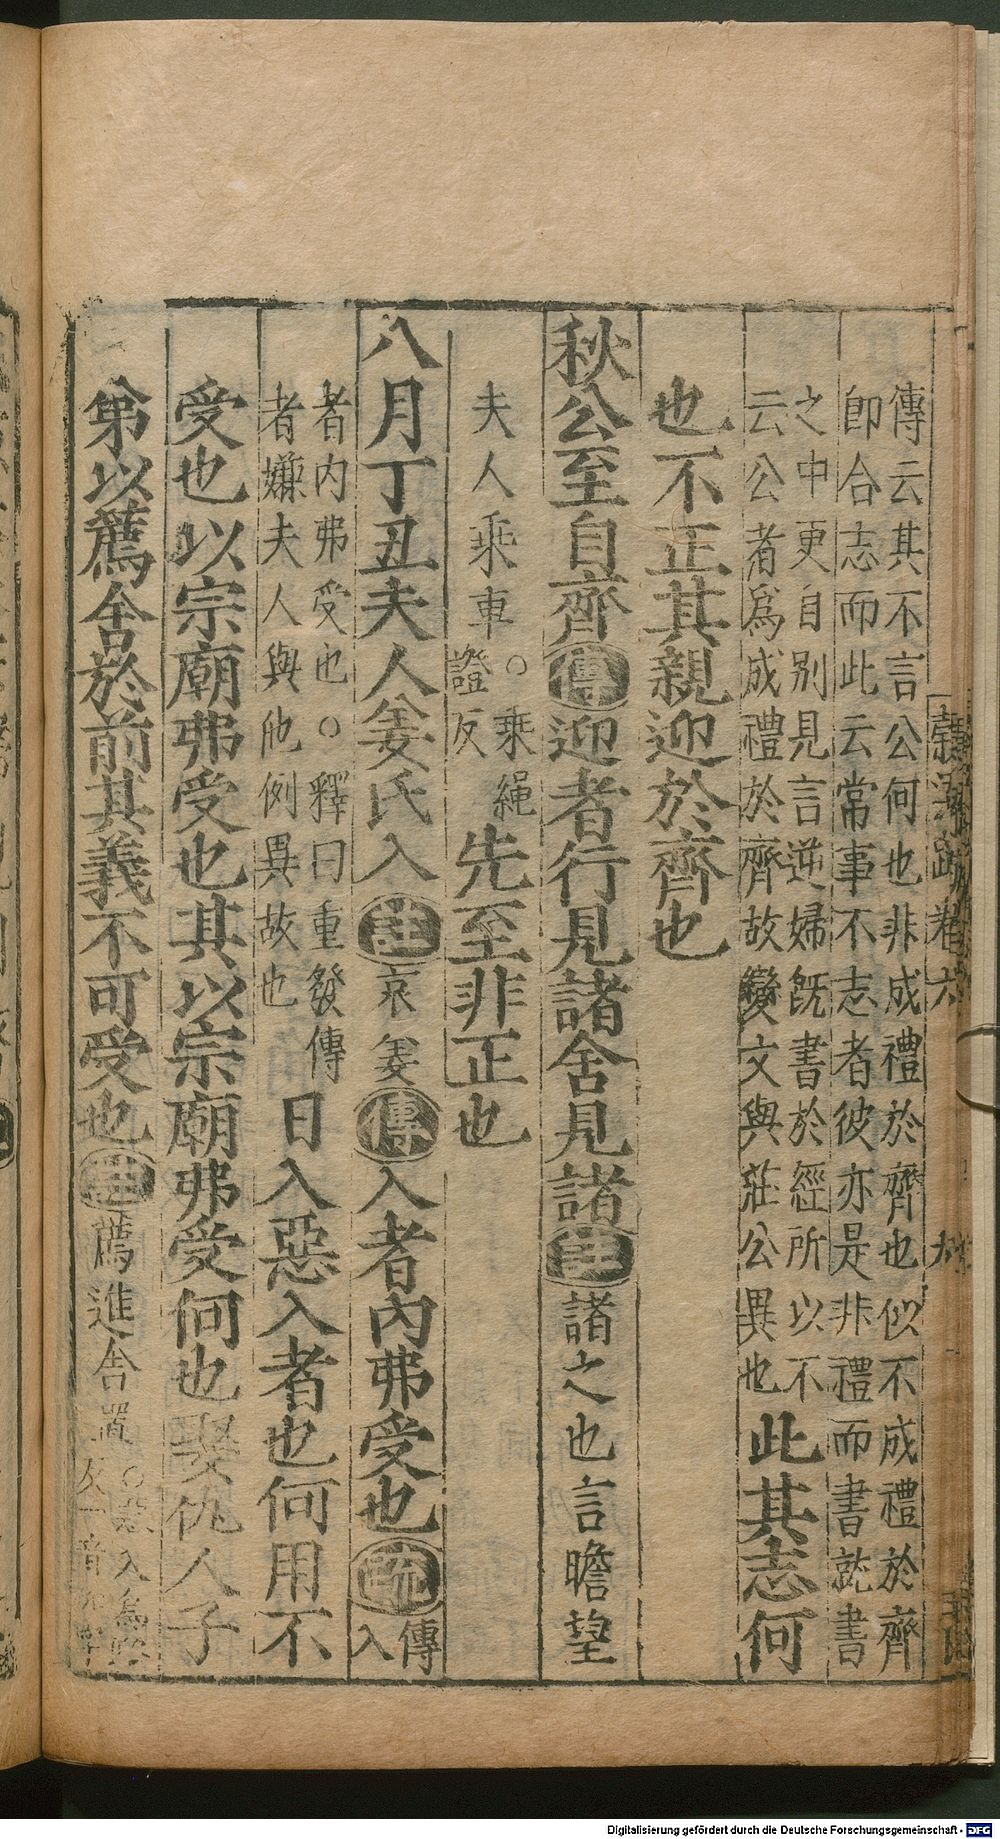 傳云其不言公何也非成禮於齊也似不成禮於齊
卽合志而此云常事不志者彼亦是非禮而書就書
之中更自别見言逆婦既書於經所以不
云公者爲成禮於齊故變文與莊公異也
此其志何
也不正其親迎於齊也
秋公至自齊傳迎者行見諸舍見諸註諸之也言瞻望
夫人乘車○乘繩證反先至非正也
八月丁丑夫人姜氏入註哀姜傳入者內弗受也疏傳入
者內弗受也○釋曰重發傳
者嫌夫人與他例異故也
日入惡入者也何用不
受也以宗廟弗受也其以宗廟弗受何也娶仇人子
弟以薦舍於前其義不可受也註薦進舍置
穀梁疏卷六
Digitalisierung gefördert durch die Deutsche Forschungsgemeinschaft - DFG